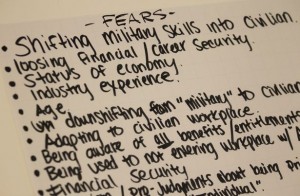 - FEARS -
• Shifting military skills into civilian.
• loosing financial / career security.
• Status of economy.
• Industry experience.
• Age
• downshifting from "military" to civilian
• Adapting to civilian workplace
• Being aware of all benefits/entitlements
• Being used to not entering workplace w/
• Financial Security
Pre-Judgments about being